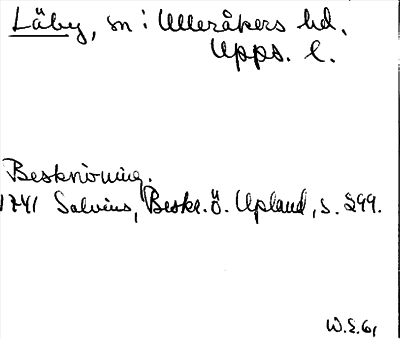 Läby, sn i Ulleråkers hd.
Upps. l.
Beskrivning.
1741 Salvius, Beskr. ö. Upland, s. 299.
W.E. 61